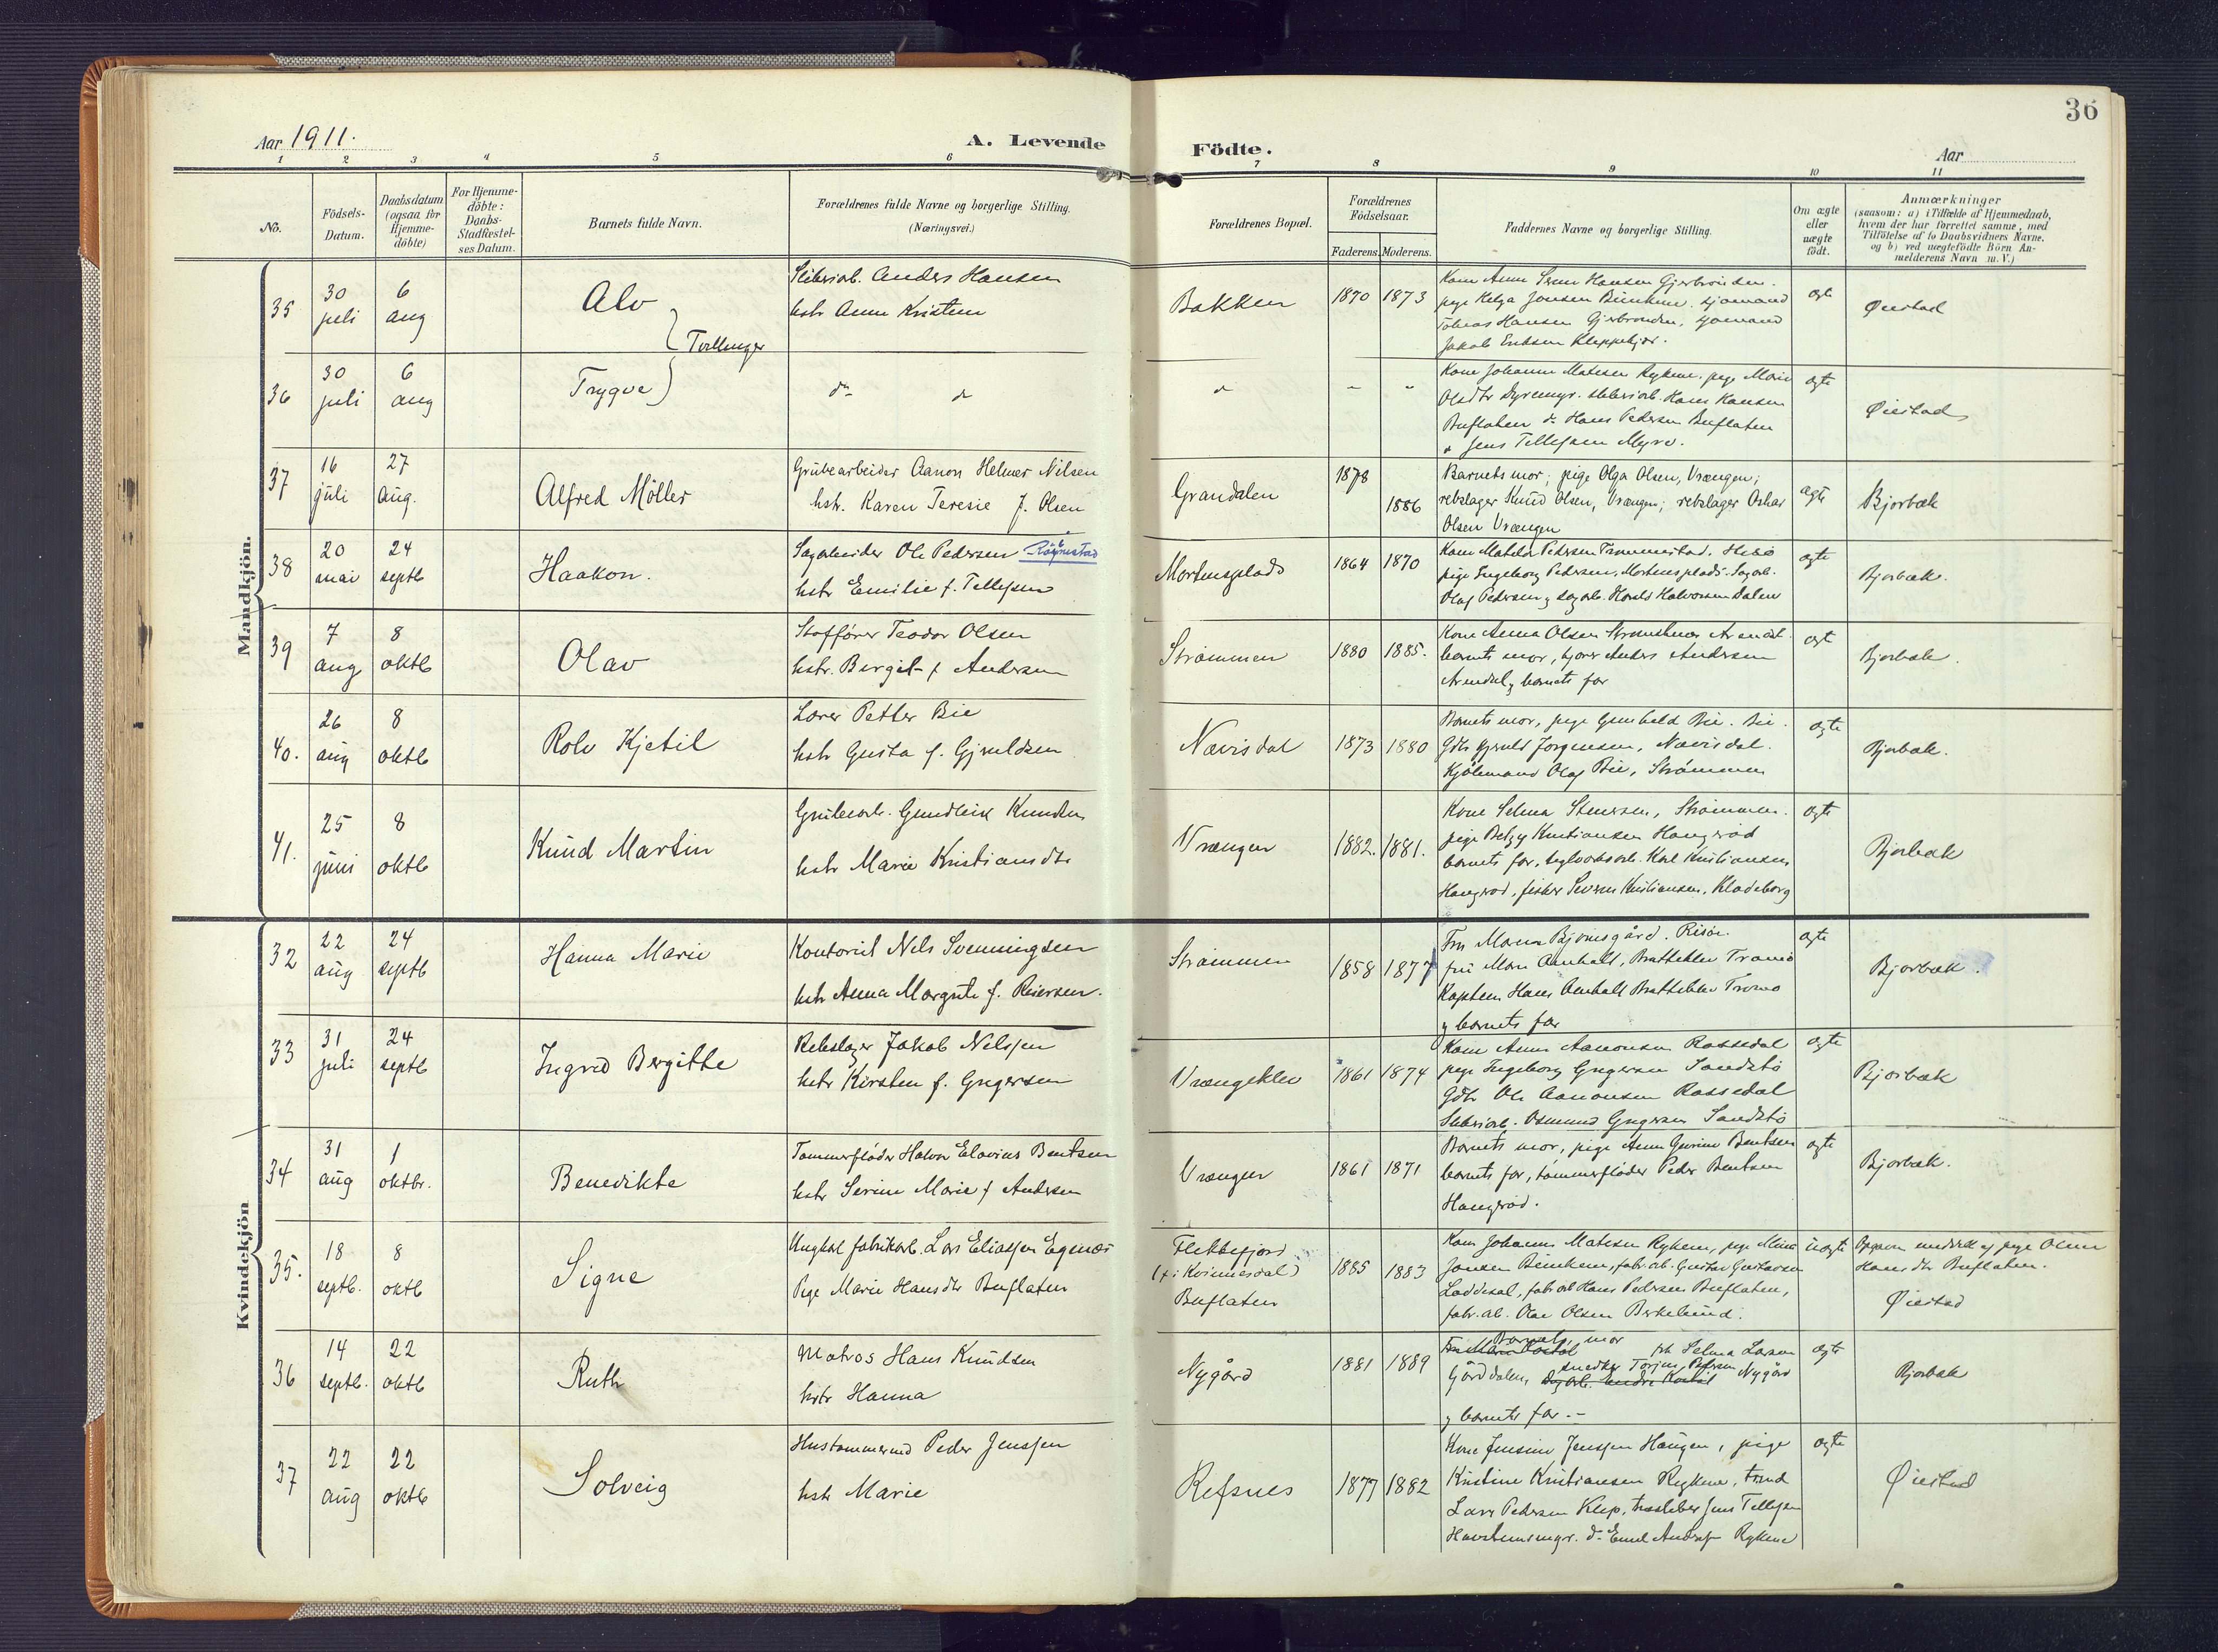 36
Aar 1911.
A. Levende
Födte.
Aar
1 2 3 4 5 6 7 8 9 10 11
No.
Födsels-
Datum.
Daabsdatum
(ogsaa for
Hjemme-
döbte)
For Hjemme-
döbte:
Daabs-
Stadfæstel-
ses Datum.
Barnets fulde Navn.
Forældrenes fulde Navne og borgerlige Stilling.
(Næringsvei.)
Forældrenes Bopæl.
Forældrenes
Födselsaar.
Faderens. Moderens.
Faddernes Navne og borgerlige Stilling.
Om ægte
eller
uægte
födt.
Anmærkninger
(saasom: a) i Tilfælde af Hjemmedaab,
hvem der har forrettet samme, med
Tilföielse af to Daabsvidners Navne.
og b) ved uegtefödte Börn An-
melderens Navn m. V.)
Mandkjön.
35
30 juli
6 aug
Alv
Tvillinger
Sliberiarb. Anders Hansen
hstr Anne Kristine
Bakken
1870 1873
pige Helga Jonsen
Tobias Hansen
Jakob Eriksen Kleppekjær.
ægte
Øiestad
36
30 juli
6 aug
Trygve
do
Kone Johanne Matisen Rykene. pige Marie
Olsdtr Dyremyr. sliberiarb. Hans Hansen
Buflaten do Hans Pedersen Buflaten
Jens Tellefsen Myre.
ægte
Øiestad
37
16 juli
27 aug.
Alfred Möller
Grubearbeider Aanon Helmer Nilsen
hstr. Karen Teresie f. Olsen
Grandalen
1878
1886
Barnets mor; pige Olga Olsen, Vrængen;
rebslager Knud Olsen, Vrængen; rebslager Oskar
Olsen Vrængen
ægte
Bjorbæk
38
20 mai
24 septb
Haakon.
Sagarbeider Ole Pedersen
hstr Emilie f. Tellefsen
Mortensplads
1864 1870
Kone Matilda Pedersen
pige Ingeborg Pedersen, Mortensplads. Sagarb.
Olaf Pedersen, sagarb. Harald Halvorsen Dalen
ægte
Bjorbæk.
39
7 aug
8 oktb
Olav
Stafförer Teodor Olsen
hstr. Bergit f Andersen
Strømmen
1880 1885.
Kone Anna Olsen
barnets mor, Anders Andersen
Arendal, barnets far
ægt
Bjorbæk.
40.
26 aug
8 oktb
Rolv Kjetil
Lærer Petter Bie
hstr Gusta f. Gjeruldsen
Nævisdal
1873 1880
Barnets mor, pige Gunhild Bie.
Gdbr Gjeruld Jörgensen, Nævisdal.
Kjöbmand Olaf Bie, Strömmen
ægte
Bjorbæk.
41.
25 juni
8 oktb
Knud Martin
Grubearb. Gundleik Knudsen
hstr Marie Kristiansdtr
Vrængen
1882. 1881.
Kone Selma Stensen, Strömmen.
pige Betzy Kristiansen Haugeröd
barnets far, Karl Kristiansen
Haugeröd, fisker Severin Kristiansen, Kladeborg
ægte
Bjorbæk
Kvindekjön
32
22 aug
24 septb
Hanna Marie
Kontorist Nels Svenningsen
hstr Anna Margrete f. Reiersen.
Strømmen
1858 1877
Fru Maren Bjonnsgård. Risör.
fru Mare Aanholt, Brattekleiv Tromö
Kaptein Hans Aanholt Brattekleiv Tromö
og barnets far
ægte
Bjorbæk.
33
31 juli
24 septb
Ingrid Bergitte
Rebslager Jakob Nelsen
hstr Kirsten f. Gregersen
Vrængeklev
1861 1874
Kone Anne Aanonsen Rossedal
pige Ingeborg Gregersen Sandstö
Gdbr Ole Aanonsen Rossedal
Sliberiarb. Osmund Gregersen Sandstö
ægte
Bjorbæk
34
31 aug
1 oktbr.
Benedikte
Tømmerfløder Halvor Elovius Bentsen
hstr Serine Marie f Andersen
Vrængen
1861 1871
Barnets mor, pige Anne Gurine Bentsen
barnets far, tömmerflöder Peder Bentsen
Haugeröd.
ægte
Bjorbæk.
35.
18 septb.
8 oktb
Signe
Ungkal fabrikarb. Lars Eliassen Egenæs
Pige Marie Hansdtr Buflaten
Flekkefjord
(f. i Kvinnesdal)
Buflaten
1885 1883
Kone Johanne Matisen Rykene, pige Mina
Jonsen, fabr.ab. Gustav Gustavsen
Løddesøl, fabr.arb Hans Pedersen Buflaten,
fabr.ab. Olav Olsen Birkelund.
uægte
Opgaven meddelt af pige Oline
Hansdtr Buflaten.
Øiestad
36
14 septb.
22 oktb
Ruth
Matros Hans Knudsen
hstr Hanna
Nygård
1881 1889
Barnets mor
frk Selma Larsen
Gårddalen, snedker Torjus Pedersen Nygård
og barnets far.-
ægte
Bjorbæk
37
22 aug
22 oktb
Solveig
Hustømmermd Peder Jenssen
hstr Marie
Refsnes
1877 1882
Kone Jensine Jenssen Haugen, pige
Kristine Kristiansen Rykene, tmd
Lars Pedersen Klep, træsliber Jens Tellefsen
Havstensmyr. do Emil Andersen Rykene
ægte
Øiestad